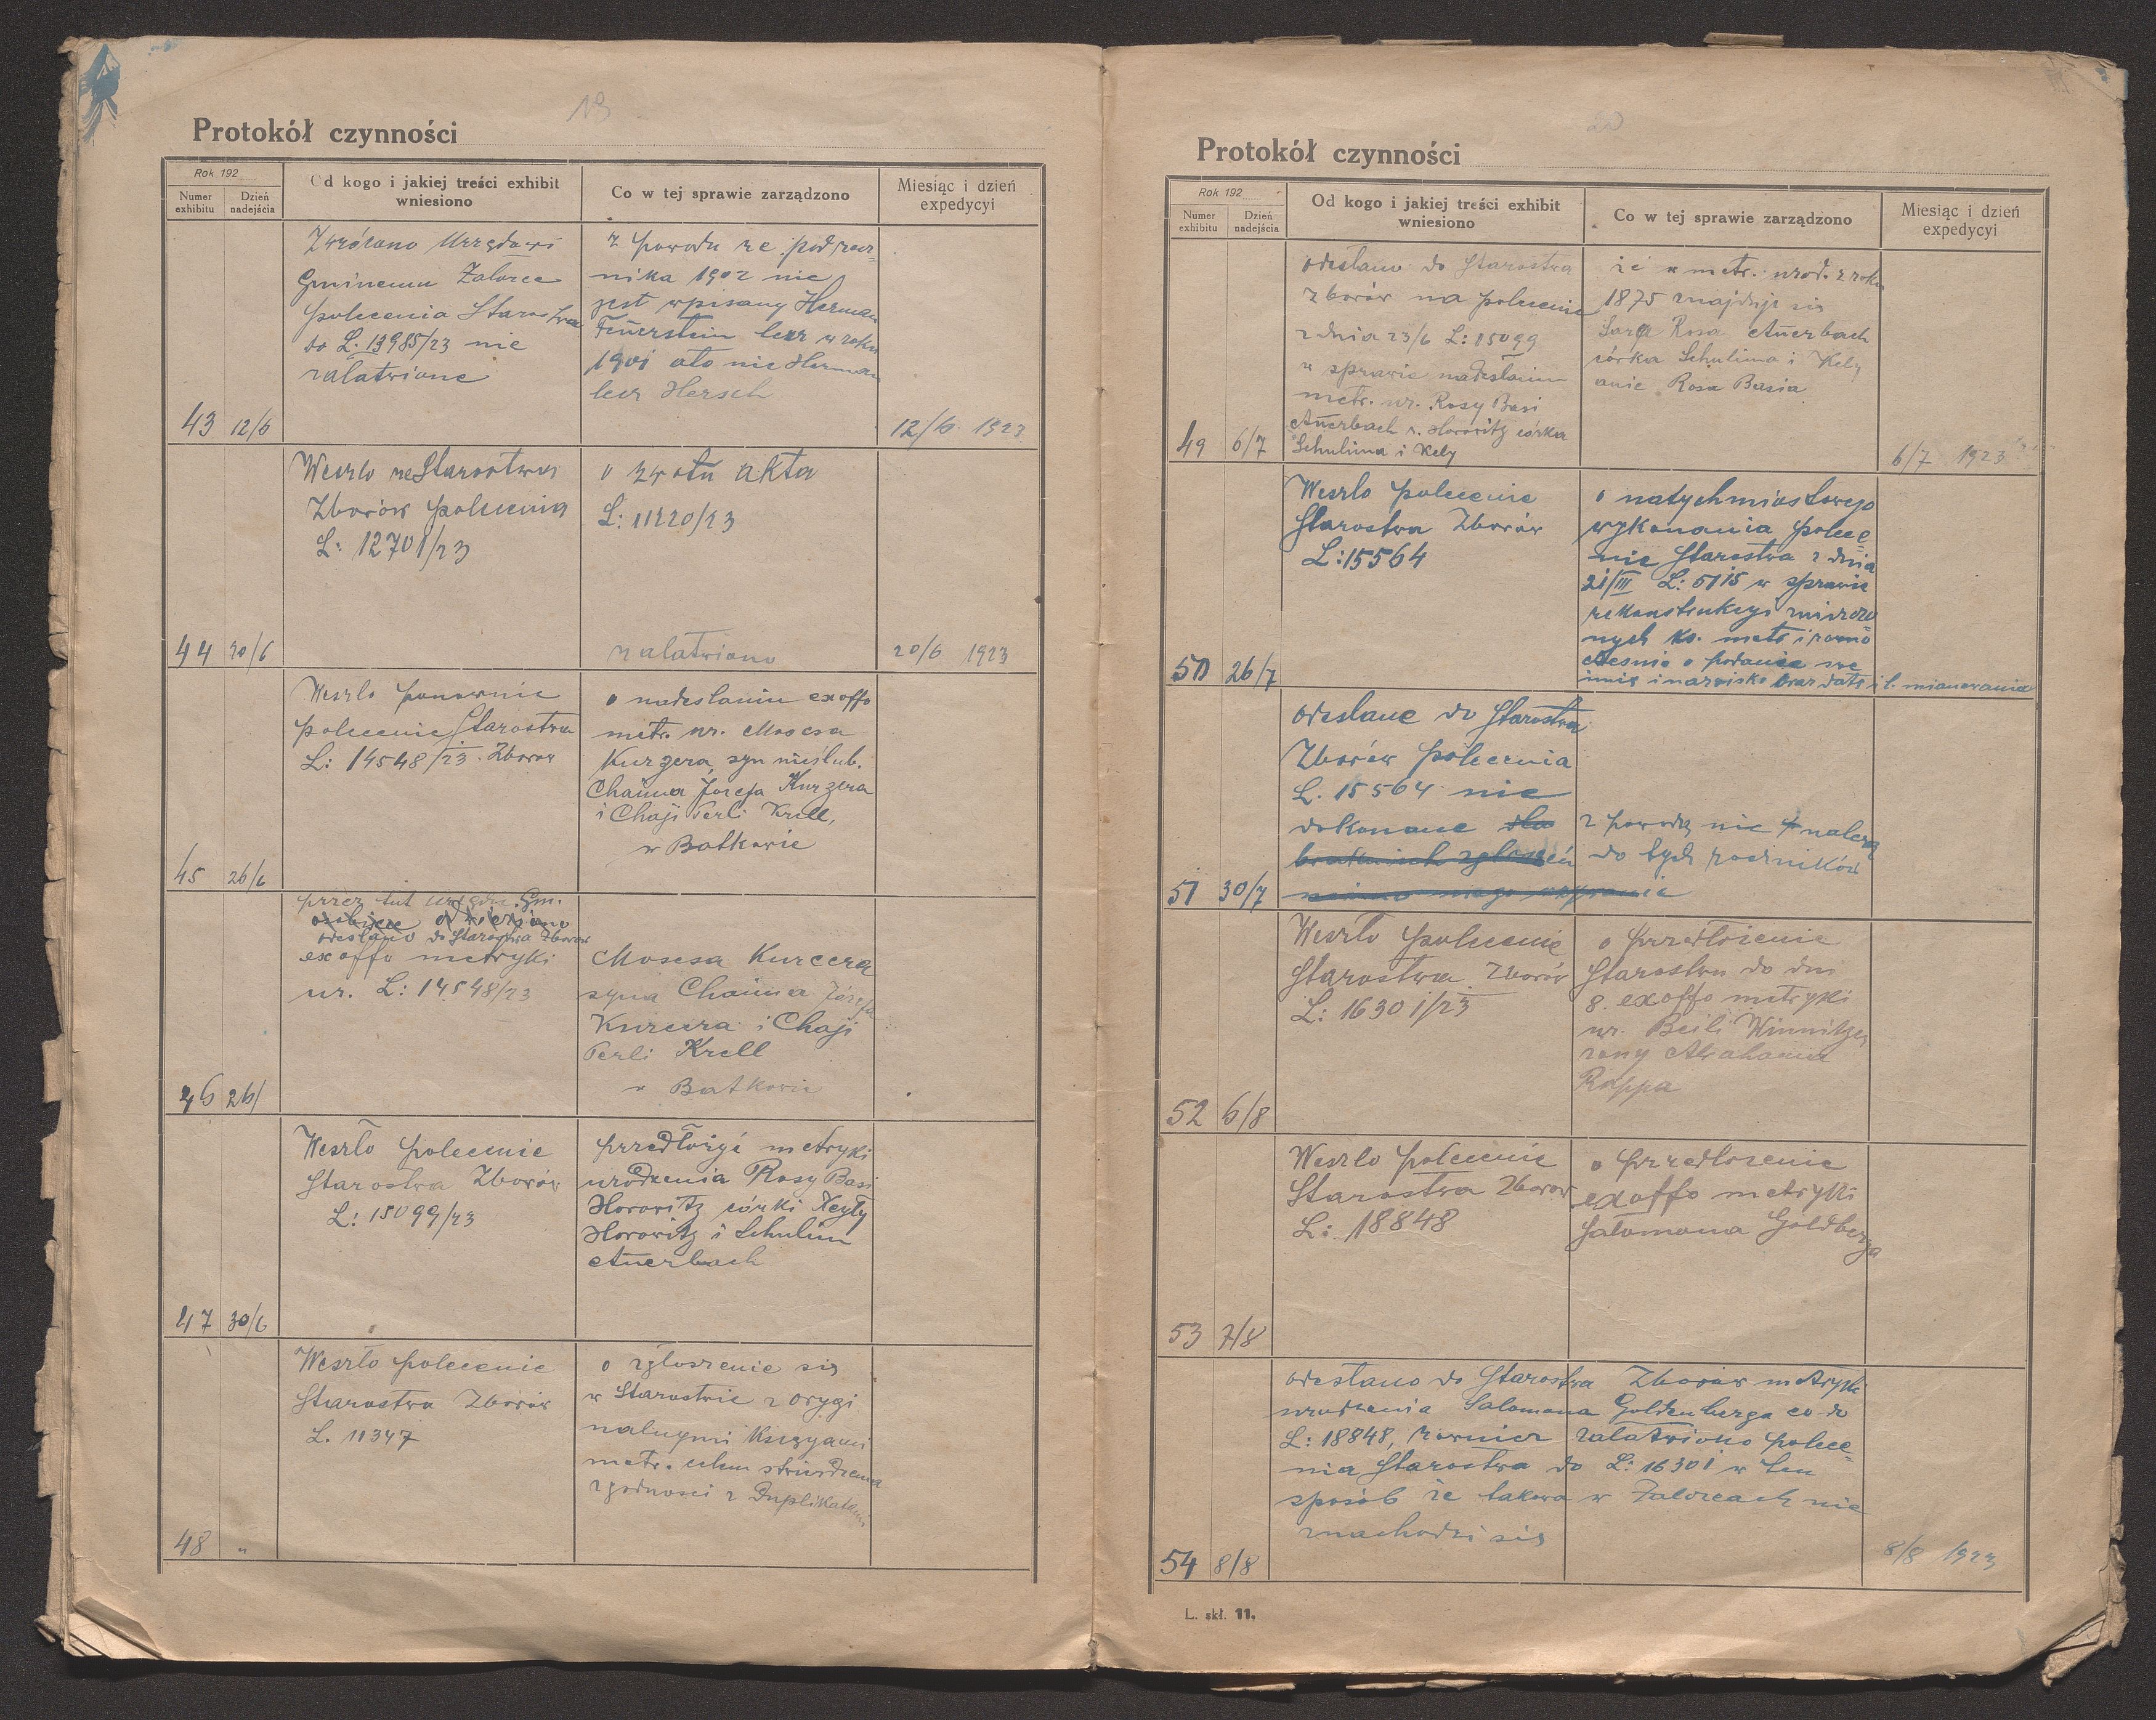 19
Protokół czynności
Rok 192
Numer exhibitu
Dzień nadejścia
Od kogo i jakiej treści exhibit wniesiono
Co w tej sprawie zarządzono
Miesiąc i dzień expedycyi
Zwrócono Urzędowi
Gminemu Załoźce
polecenia Starostwa
do L. 13985/23 nie
załatwione
z powodu że pod rocz=
nika 1902 nie
jest wpisany Herman
Feuerstein lecz w roku
1901 ato nie Herman
lecz Hersch
43 12/6
12/6 1923
Weszło ze Starostwa
Zborów polecenia
L: 12701/23
o zwrotu akta
L: 11220/23
załatwiono
44 20/6
20/6 1923
Weszło ponownie
polecenie Starostwa
L: 14548/23 Zborow
o nadesłaniu exoffo
metr. ur. Mosesa
Kurzera syn nieślub.
Chaima Józefa Kurzera
i Chaji Perli Krell,
w Batkowie
45 26/6
przez tut urzędu. Gm.
odesłano do Starostwa Zborow
exoffo metryki
ur. L: 14548/23
Mosesa Kurcera
syna Chaima Józefa
Kurcera i Chaji
Perli Krell
w Batkowie
46 26/
Weszło polecenie
Starostwa Zborów
L: 15099/23
przedłożyć metryki
urodzenia Rosy Basi
Horowitz córki Keyly
Horowitz i Schulim
Auerbach
47 30/6
Weszło polecenie
Starostwa Zborów
L. 11347
o zgłoszenie się
w Starostwie z orygi
nalnymi Księgami
metr. celem stwierdzenia
zgodności z Duplikatami
48 "
20
Protokół czynności
Rok 192
Numer exhibitu
Dzień nadejścia
Od kogo i jakiej treści exhibit wniesiono
Co w tej sprawie zarządzono
Miesiąc i dzień expedycyi
odesłano do Starostwa
Zborów na polecenie
z dnia 23/6 L: 15099
w sprawie nadesłaniu
metr. ur. Rosy Basi
Auerbach v. Horowitz córka
Schulima i Kely
że w metr. urod. z roku
1875 znajduje się
Sara Rosa Auerbach
córka Schulima i Kely
anie Rosa Basia
49 6/7
6/7 1923
Weszło polecenie
Starostwa Zborów
L: 15564
o natychmiastowego
wykonania polece
nie Starostwa z dnia
21/III L: 5115 w sprawie
rekonstrukcyi zniszczo
nych ks. metr i rowno=
cześnie o podanie swe
imię i nazwisko oraz datę i l. mianowania
50 26/7
odesłane do Starostwa
Zborów polecenia
L. 15564 nie
dokonane dla
z powodu nie należą
do tych roczników
51 30/7
Weszło polecenie
Starostwa Zborów
L: 16301/23
o przedłożenie
Starostwu do dni
8. exoffo metryki
ur. Beili Winnitzer
żony Abrahama
Rappa
52 6/8
Weszło polecenie
Starostwa Zborow
L: 18848
o przedłożenie
exoffo metryki
Salomona Goldberga
53 7/8
odesłano do Starostwa Zborów metryk
urodzenia Salomona Goldenberga co do
L: 18848, rownież załatwiono polece=
nia Starostwa do L: 16301 w ten
sposób że takowa w Załoźcach nie
znachodzi się
54 8/8
8/8 1923
L. skł. 11.